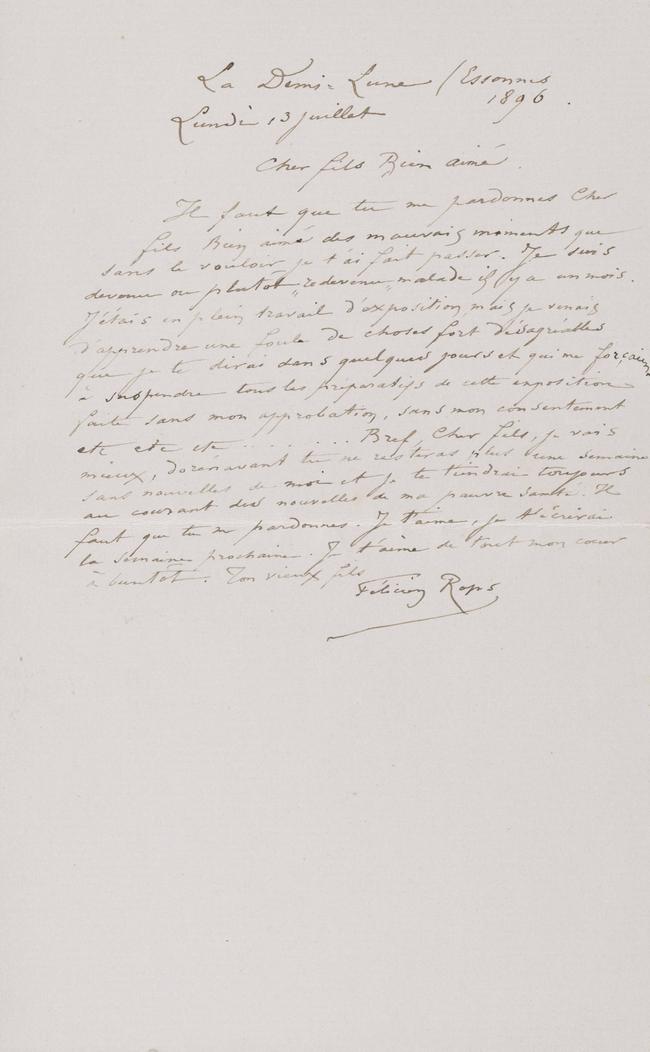 La Demi-Lune / Essonnes
1896.
Lundi 13 juillet
Cher fils Bien aimé.
Il faut que tu me pardonnes Cher
fils Bien aimé des mauvais moments que
sans le vouloir je t'ai fait passer. Je suis
devenu ou plutôt "redevenu" malade il y a un mois.
J'étais en plein travail d'exposition, mais je venais
d'apprendre une foule de choses fort désagréables
que je te dirai dans quelques jours et qui me forçaient
à suspendre tous les préparatifs de cette exposition
faite sans mon approbation, sans mon consentement
etc etc etc ........ Bref, Cher fils, je vais
mieux, dorénavant tu ne resteras plus une semaine
sans nouvelles de moi et je te tiendrai toujours
au courant des nouvelles de ma pauvre santé. Il
faut que tu me pardonnes. Je t'aime, je t'écrirai
la semaine prochaine. Je t'aime de tout mon cœur
à bientôt. Ton vieux fils
Félicien Rops